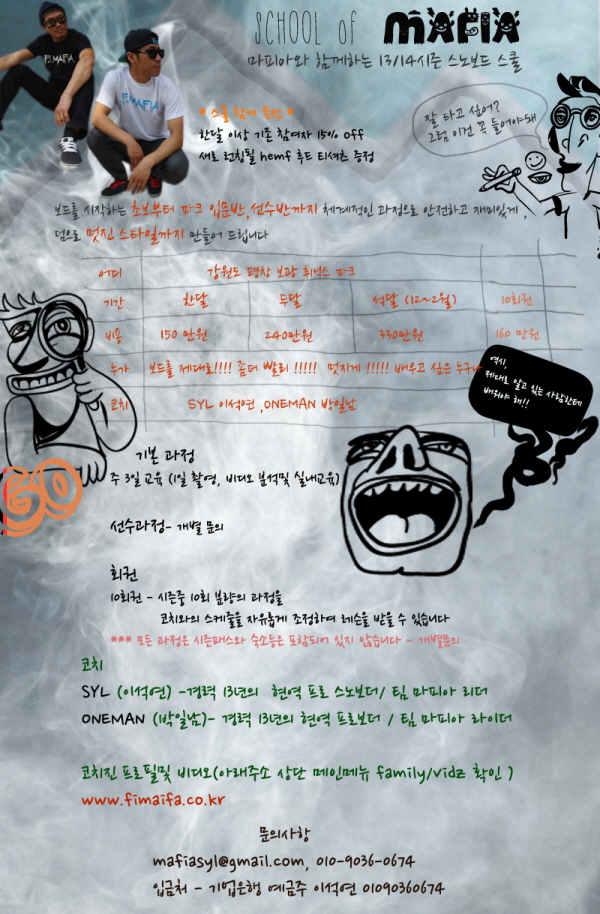 SCHOOL of MAFIA
마피아와 함께하는 13/14시즌 스노보드 스쿨
F.MAFIA
F.MAFIA
* 스쿨 참여 특전 *
한달 이상 기존 참여자 15% off
새로 런칭될 hemf 후드 티셔츠 증정
잘 타고 싶어?
그럼 이건 꼭 들어야돼
보드를 시작하는 초보부터 파크 입문반,선수반까지 체계적인 과정으로 안전하고 재미있게 ,
덤으로 멋진 스타일까지 만들어 드립니다
어디 강원도 평창 보광 휘닉스 파크
기간 한달 두달 석달 (12~2월) 10회권
비용 150 만원 240만원 330만원 160 만원
누가 보드를 제대로!!!! 좀더 빨리 !!!!! 멋지게 !!!!! 배우고 싶은 누구나
코치 SYL 이석연 ,ONEMAN 박일남
역시,
제대로 알고 있는 사람한테
배워야 해!!
GO
기본 과정
주 3일 교육 (1일 촬영, 비디오 분석및 실내교육)
선수과정- 개별 문의
회권
10회권 - 시즌중 10회 분량의 과정을
코치와의 스케줄을 자유롭게 조정하여 레슨을 받을 수 있습니다
*** 모든 과정은 시즌패스와 숙소등은 포함되어 있지 않습니다 - 개별문의
코치
SYL (이석연) -경력 13년의 현역 프로 스노보더/ 팀 마피아 리더
ONEMAN (박일남)- 경력 13년의 현역 프로보더 / 팀 마피아 라이더
코치진 프로필및 비디오(아래주소 상단 메인메뉴 family/vidz 확인 )
www.fimaifa.co.kr
문의사항
mafiasyl@gmail.com, 010-9036-0674
입금처 - 기업은행 예금주 이석연 01090360674